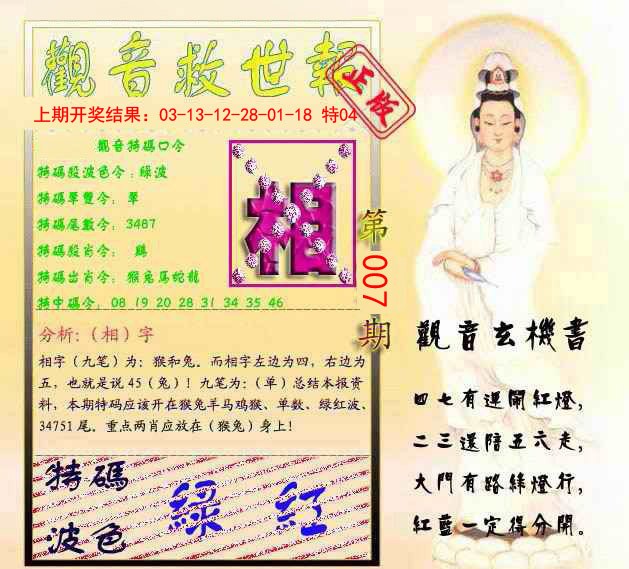 觀音救世報
正版
上期开奖结果：03-13-12-28-01-18 特04
觀音特碼口令
特碼殺波色令：綠波
特碼單雙令： 單
特碼尾數令：3487
特碼殺肖令： 鷄
特碼出肖令：猴兔馬蛇龍
特中碼令：08 19 20 28 31 34 35 46
相
第007期
分析：（相）字
相字（九笔）为：猴和兔。而相字左边为四，右边为
五，也就是说 45（兔）！九笔为：（单）总结本报资
料，本期特码应该开在猴兔羊马鸡猴、单数、绿红波、
34751 尾。重点两肖应放在（猴兔）身上！
特碼
波色
綠 紅
觀音玄機書
四七有運鬧紅燈，
二三還陪五六走，
大門有路綠燈行，
紅藍一定得分開。